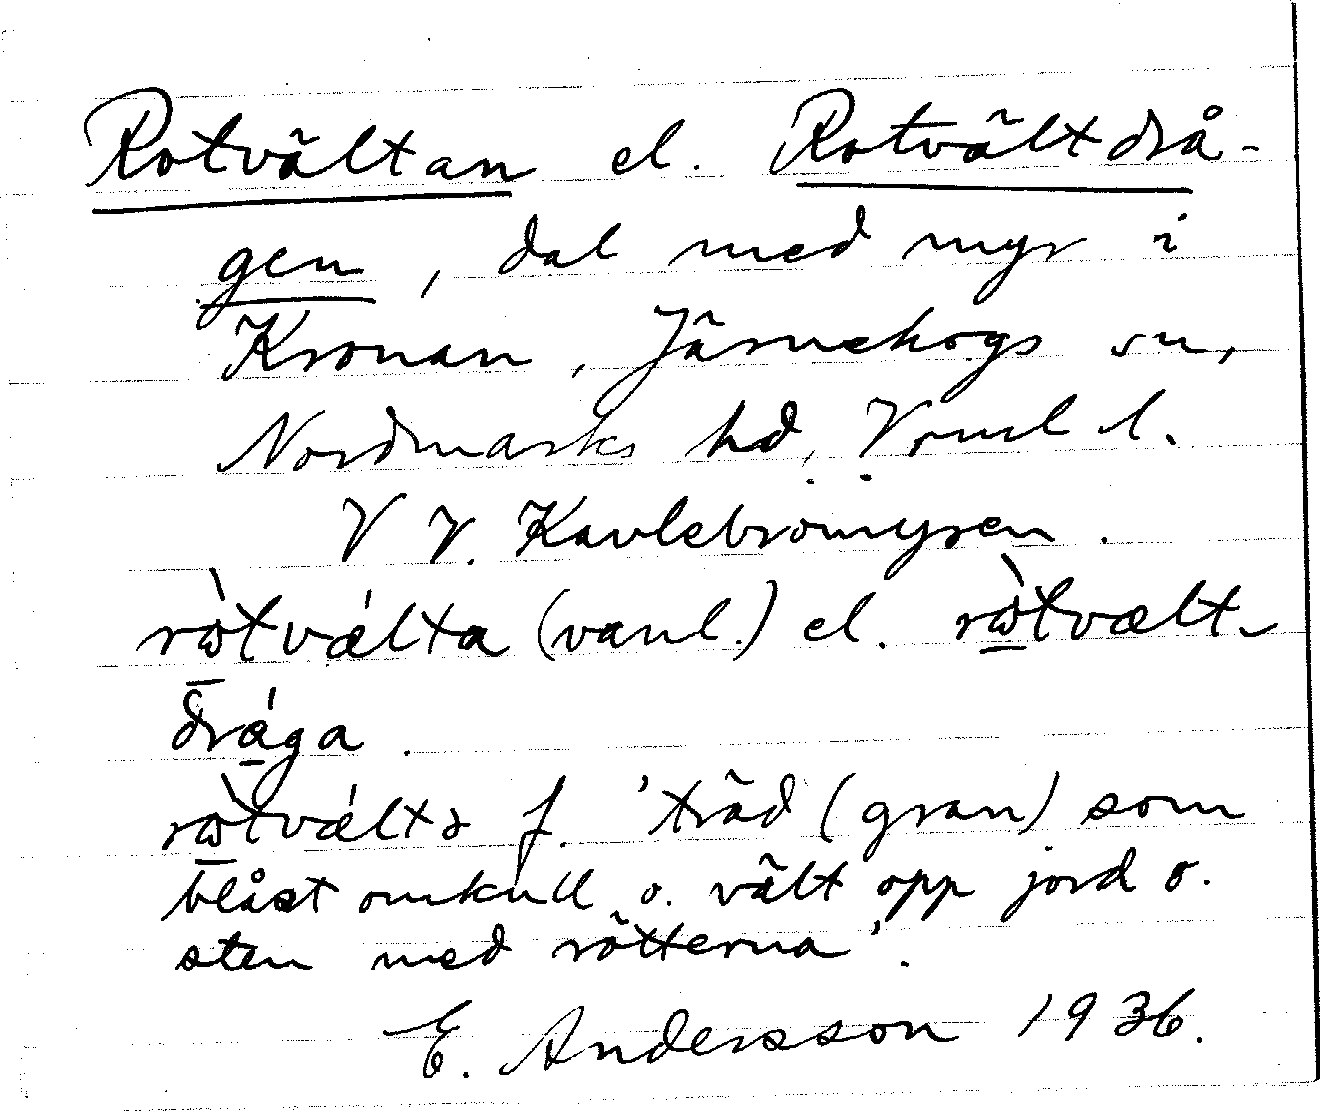 Rotvältan el. Rotvältdrå-
gen, dal med myr i
Kronan, Järnskogs sn,
Nordmarks hd, Vrml l.
V V. Kavlebromyren.
rὼtvǽlta (vanl.) el. rὼtvælt-
drága.
rὼtvǽltə f. 'träd (gran) som
blåst omkull o. vält opp jord o.
sten med rötterna'.
E. Andersson 1936.